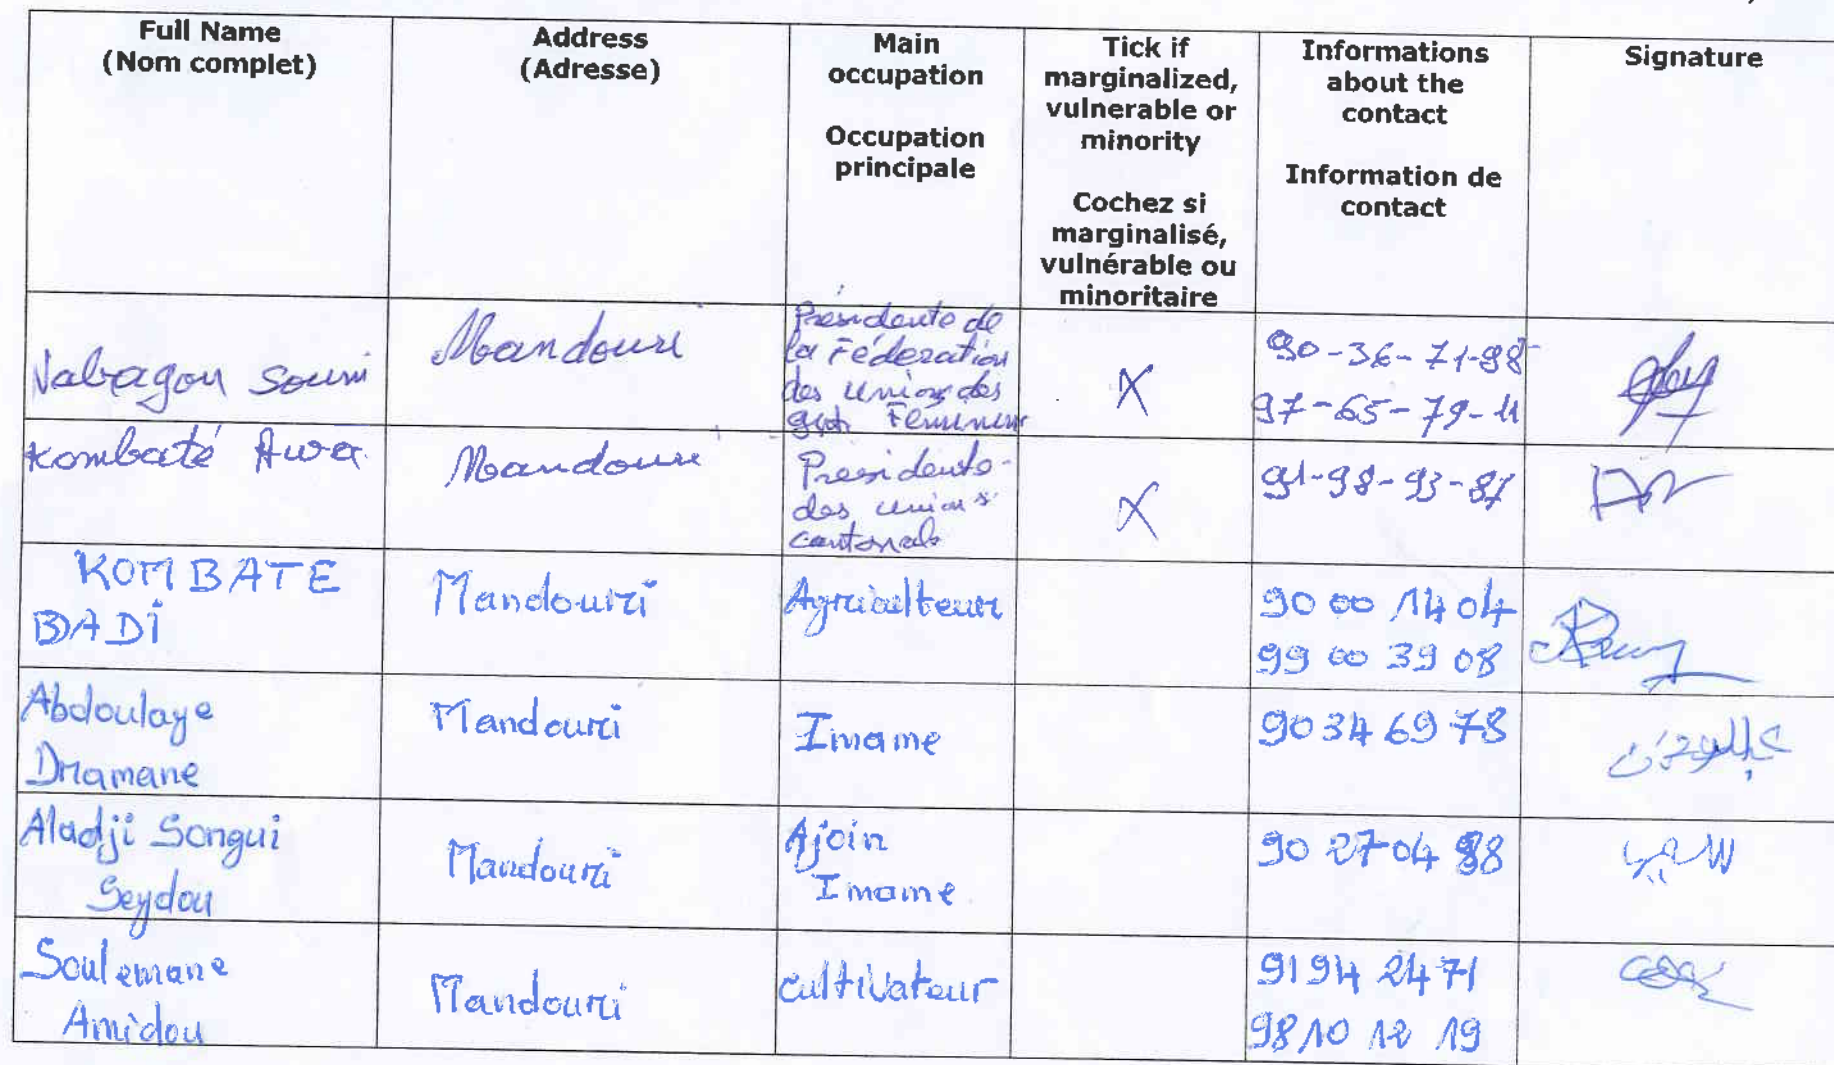 Full Name
(Nom complet)
Address
(Adresse)
Main
occupation
Occupation
principale
Tick if
marginalized,
vulnerable or
minority
Cochez si
marginalisé,
vulnérable ou
minoritaire
Informations
about the
contact
Information de
contact
Signature
Nabagou Soumi
Mandouri
Présidente de
la Féderation
des Unions des
Feminin
X
90-36-71-98
97-65-79-11
Kombaté Awa
Mandouri
Presidente
des unions
cantonals
X
91-98-93-87
KOMBATE
BADI
Mandouri
Agriculteur
90 00 14 04
99 00 39 08
Abdoulaye
Dramane
Mandouri
Imame
90 34 69 78
Aladji Songui
Seydou
Mandouri
Ajoin
Imame
90 27 04 98
Soulemane
Amidou
Mandouri
cultivateur
91 94 24 71
98 10 12 19